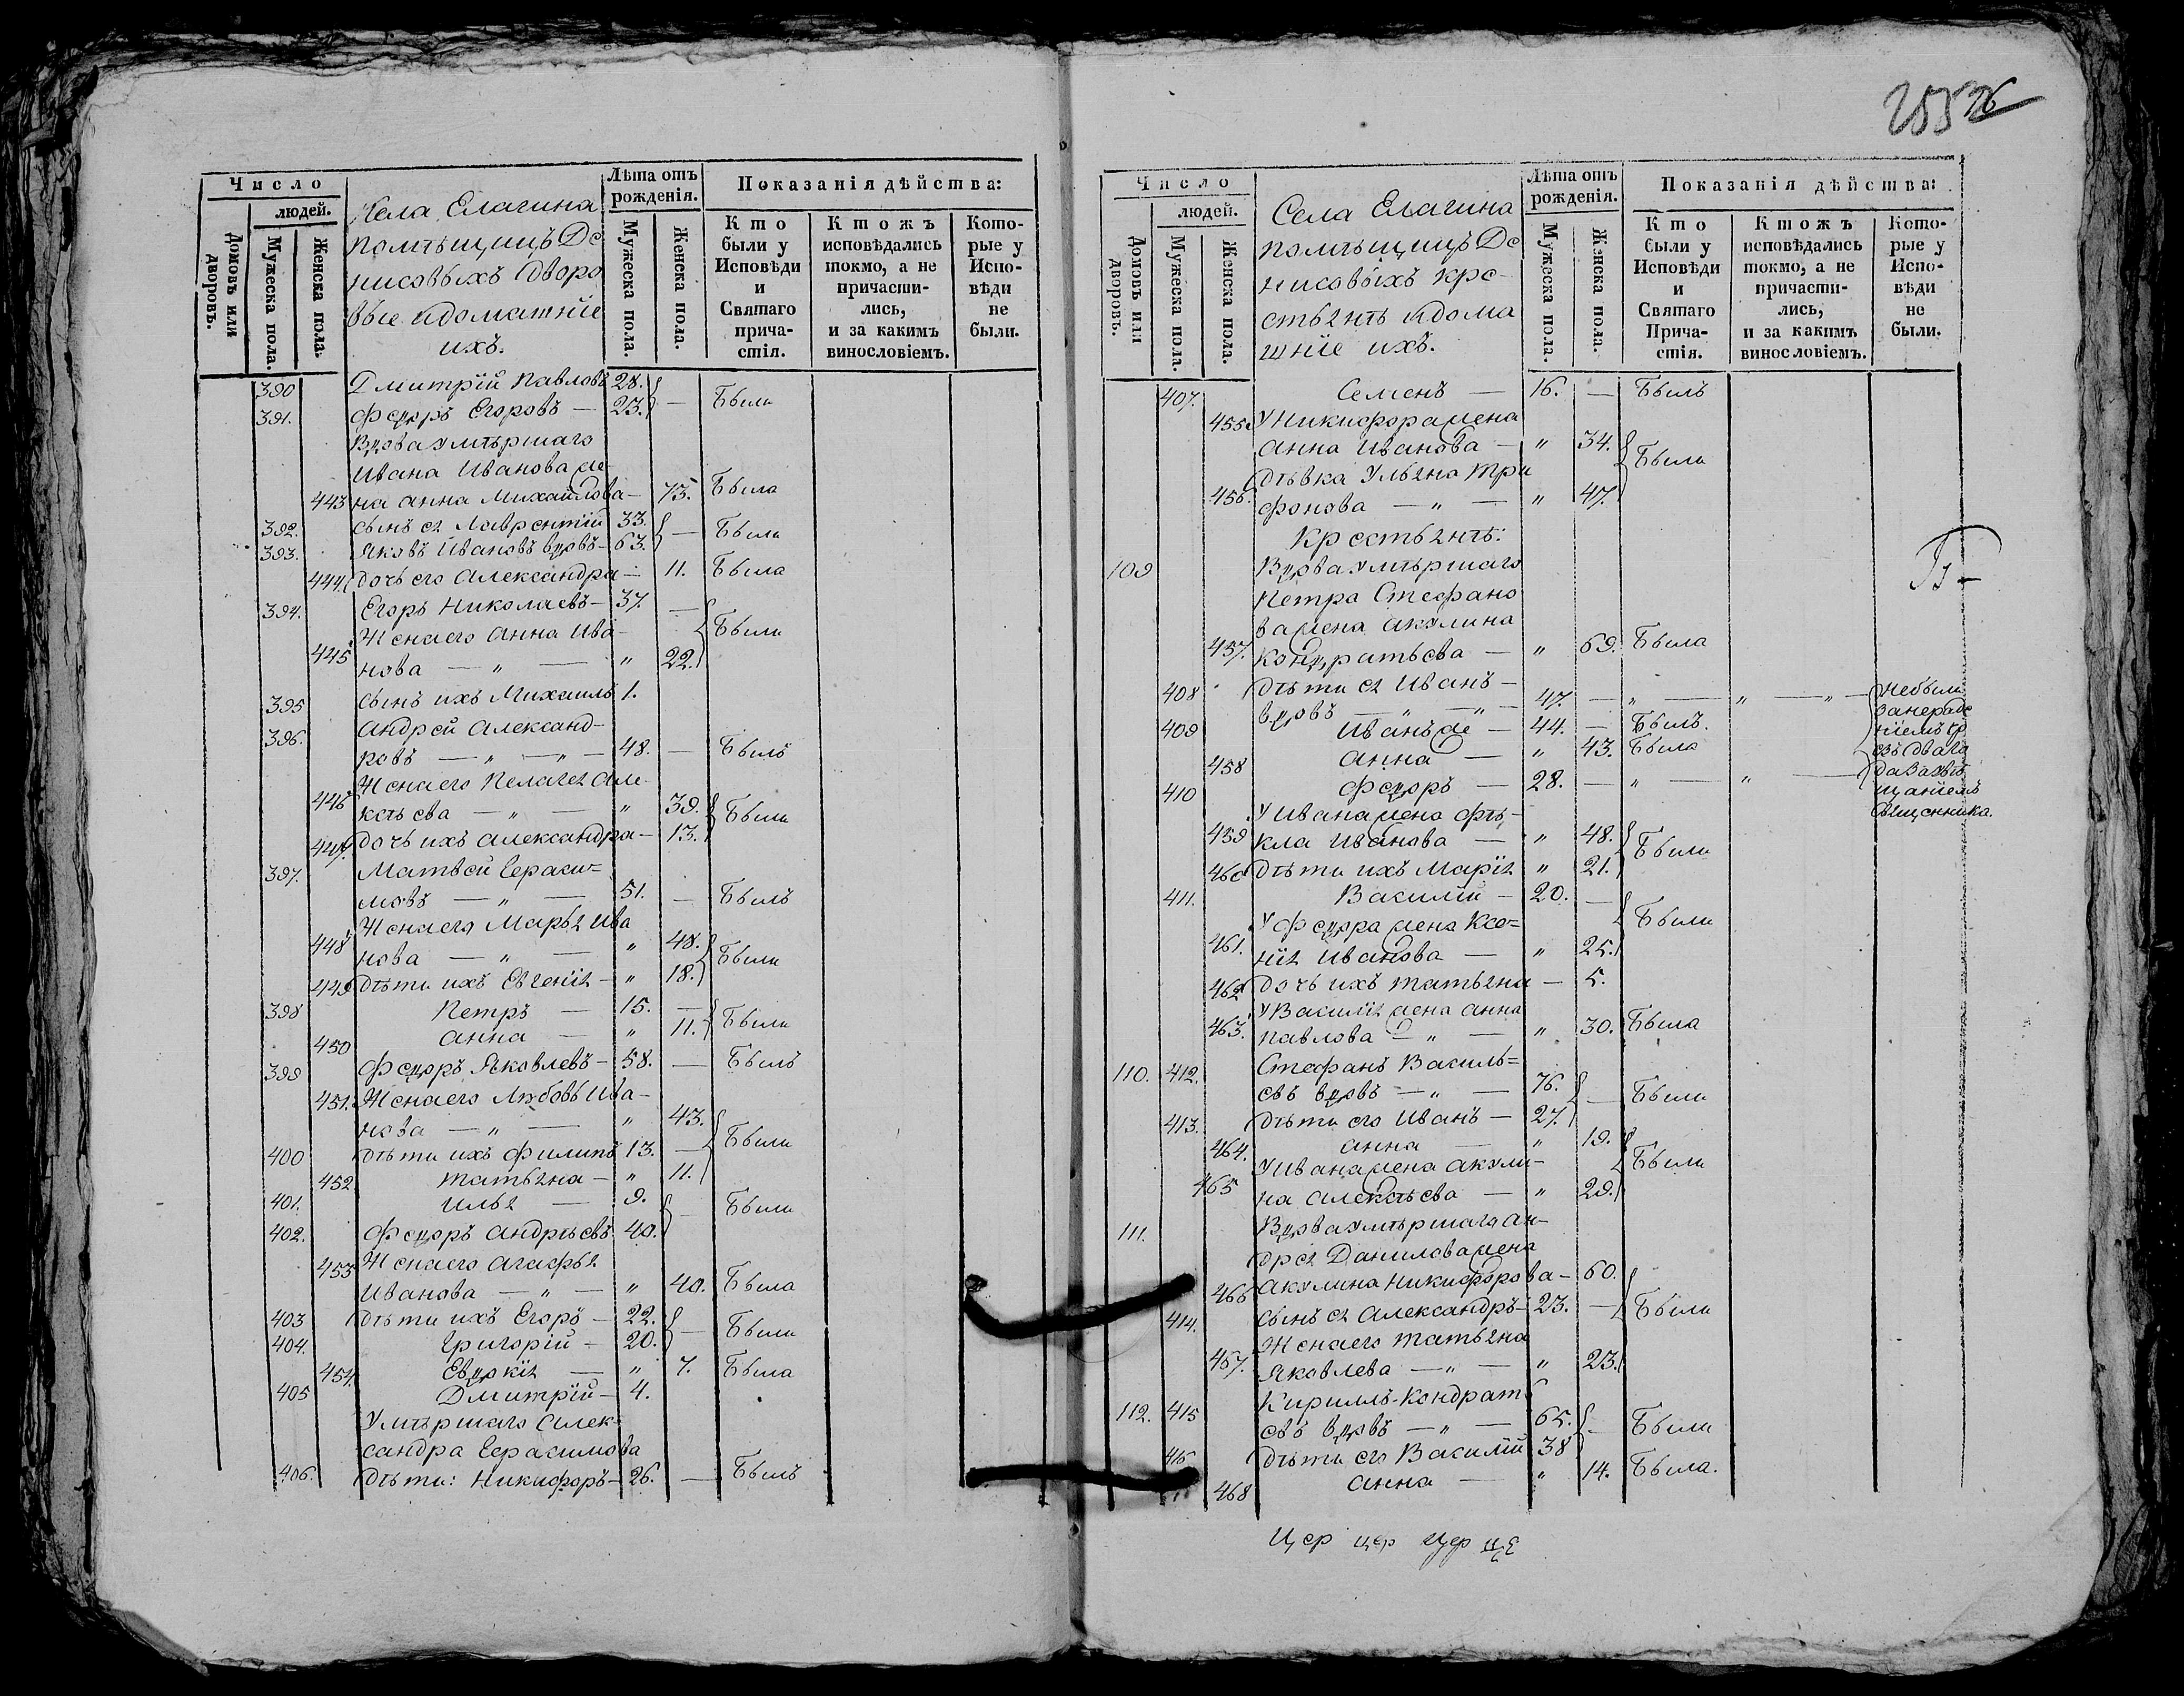 Число
людей.
Домовъ или дворовъ.
Мужеска пола.
Женска пола.
Села Елагина
помѣщицъ Де
нисовыхъ дворо
вые идоматніе
ихъ.
Лѣта отъ рожденія.
Мужеска пола.
Женска пола.
Показанія дѣйства:
Кто были у Исповѣди и Святаго прича- стія.
Ктожъ исповѣдались токмо, а не причасти- лись, и за какимъ винословіемъ.
Кото- рые у Испо- вѣди не были.
390 Дмитрій Павловъ 28. —
391. Федоръ Егоровъ — 23. — Были
Вдова умѣршаго
Ивана Иванова же-
443 на Анна Михайлова — 73. Была
392. сынъ ея Лаврентій 33.
393. Яковъ Ивановъ вдовъ — 63. — Были
444. дочь его Александра — 11. Была
394. Егоръ Николаевъ — 37. —
Жена его Анна Ива- Были
445 нова — „ — „ 22.
395 сынъ ихъ Михаилъ 1.
396. Андрей Александ-
ровъ — „ — „ — 48. — Былъ
Жена его Пелагея Але
446 ксѣева — „ — „ 39. Были
447. дочь ихъ Александра — 13.
397. Матвей Гераси=
мовъ — „ — 51. — Былъ
Жена его Марья Ива
448 нова — „ — „ 48. Были
449 дѣти ихъ Евгенія — „ 18.
398 Петръ — 15. —
450 Анна — „ 11. Были
399 Федоръ Яковлевъ — 58. — Былъ
451. Жена его Любовь Ива-
нова — „ — „ 43.
400 дѣти ихъ Филипъ 13. — Были
452 Татьяна — „ 11.
401. Илья — 9.
402. Федоръ Андрѣевъ 40. — Были
453 Жена его Агафья
Иванова — „ — „ 40. Была
403 дѣти ихъ Егоръ — 22.
404. Григорій — 20. — Были
454. Евдокія — „ 7. Была
405 Дмитрій — 4.
Умѣршаго Алек-
сандра Герасимова
406. дѣти: Никифоръ — 26. — Былъ
255
Число
людей.
Домовъ или дворовъ.
Мужеска пола.
Женска пола.
Села Елагина
помѣщицъ Де
нисовыхъ кре-
стьянъ идома
шніе ихъ.
Лѣта отъ рожденія.
Мужеска пола.
Женска пола.
Показанія дѣйства:
Кто были у Исповѣди и Святаго Прича- стія.
Ктожъ исповѣдались токмо, а не причасти- лись, и за какимъ винословіемъ.
Кото- рые у Испо- вѣди не были.
407. Семенъ — 16. — Былъ
455. У Никифора жена
Анна Иванова — „ 34. Были
дѣвка Ульяна Три
456. фонова — „ — „ 47.
Крестьянѣ:
109 Вдова умѣршаго
Петра Стефано
ва жена Акулина
457. Кондратьева — „ 69. Была
408 дѣти ея Иванъ —
вдовъ — „ — „ — 47. — „ — „ — „ — небыли
409 Иванъ же — 44. — Былъ.
458 Анна — „ 43. Была
410 Федоръ — 28. — „ — „ —
У Ивана жена Фѣ-
459 кла Иванова — „ 48. Были
460 дѣти ихъ Марія „ 21.
411. Василій — 20. —
У Федора жена Ксе= Были
461. нія Иванова — „ 25.
462 дочь ихъ Татьяна — 5.
У Василія жена Анна
463. Павлова — „ — „ 30. Была
110. 412. Стефанъ Василь=
евъ вдовъ — „ — 76. — Были
413. дѣти его Иванъ — 27.
464. Анна — „ 19.
У Ивана жена Акули- Были
465 на Алексѣева — „ 29.
111. Вдова умѣршаго Ан-
дрея Данилова жена
466 Акулина Никифорова — 60.
414. сынъ ея Александръ — 23. — Были
Жена его Татьяна
467. Яковлева — „ — „ 23.
112. 415 Кириллъ Кондрать
евъ вдовъ — „ — 65. — Были
416 дѣти его Василій 38
468 Анна — „ 14. Была.
Цер цер Цер